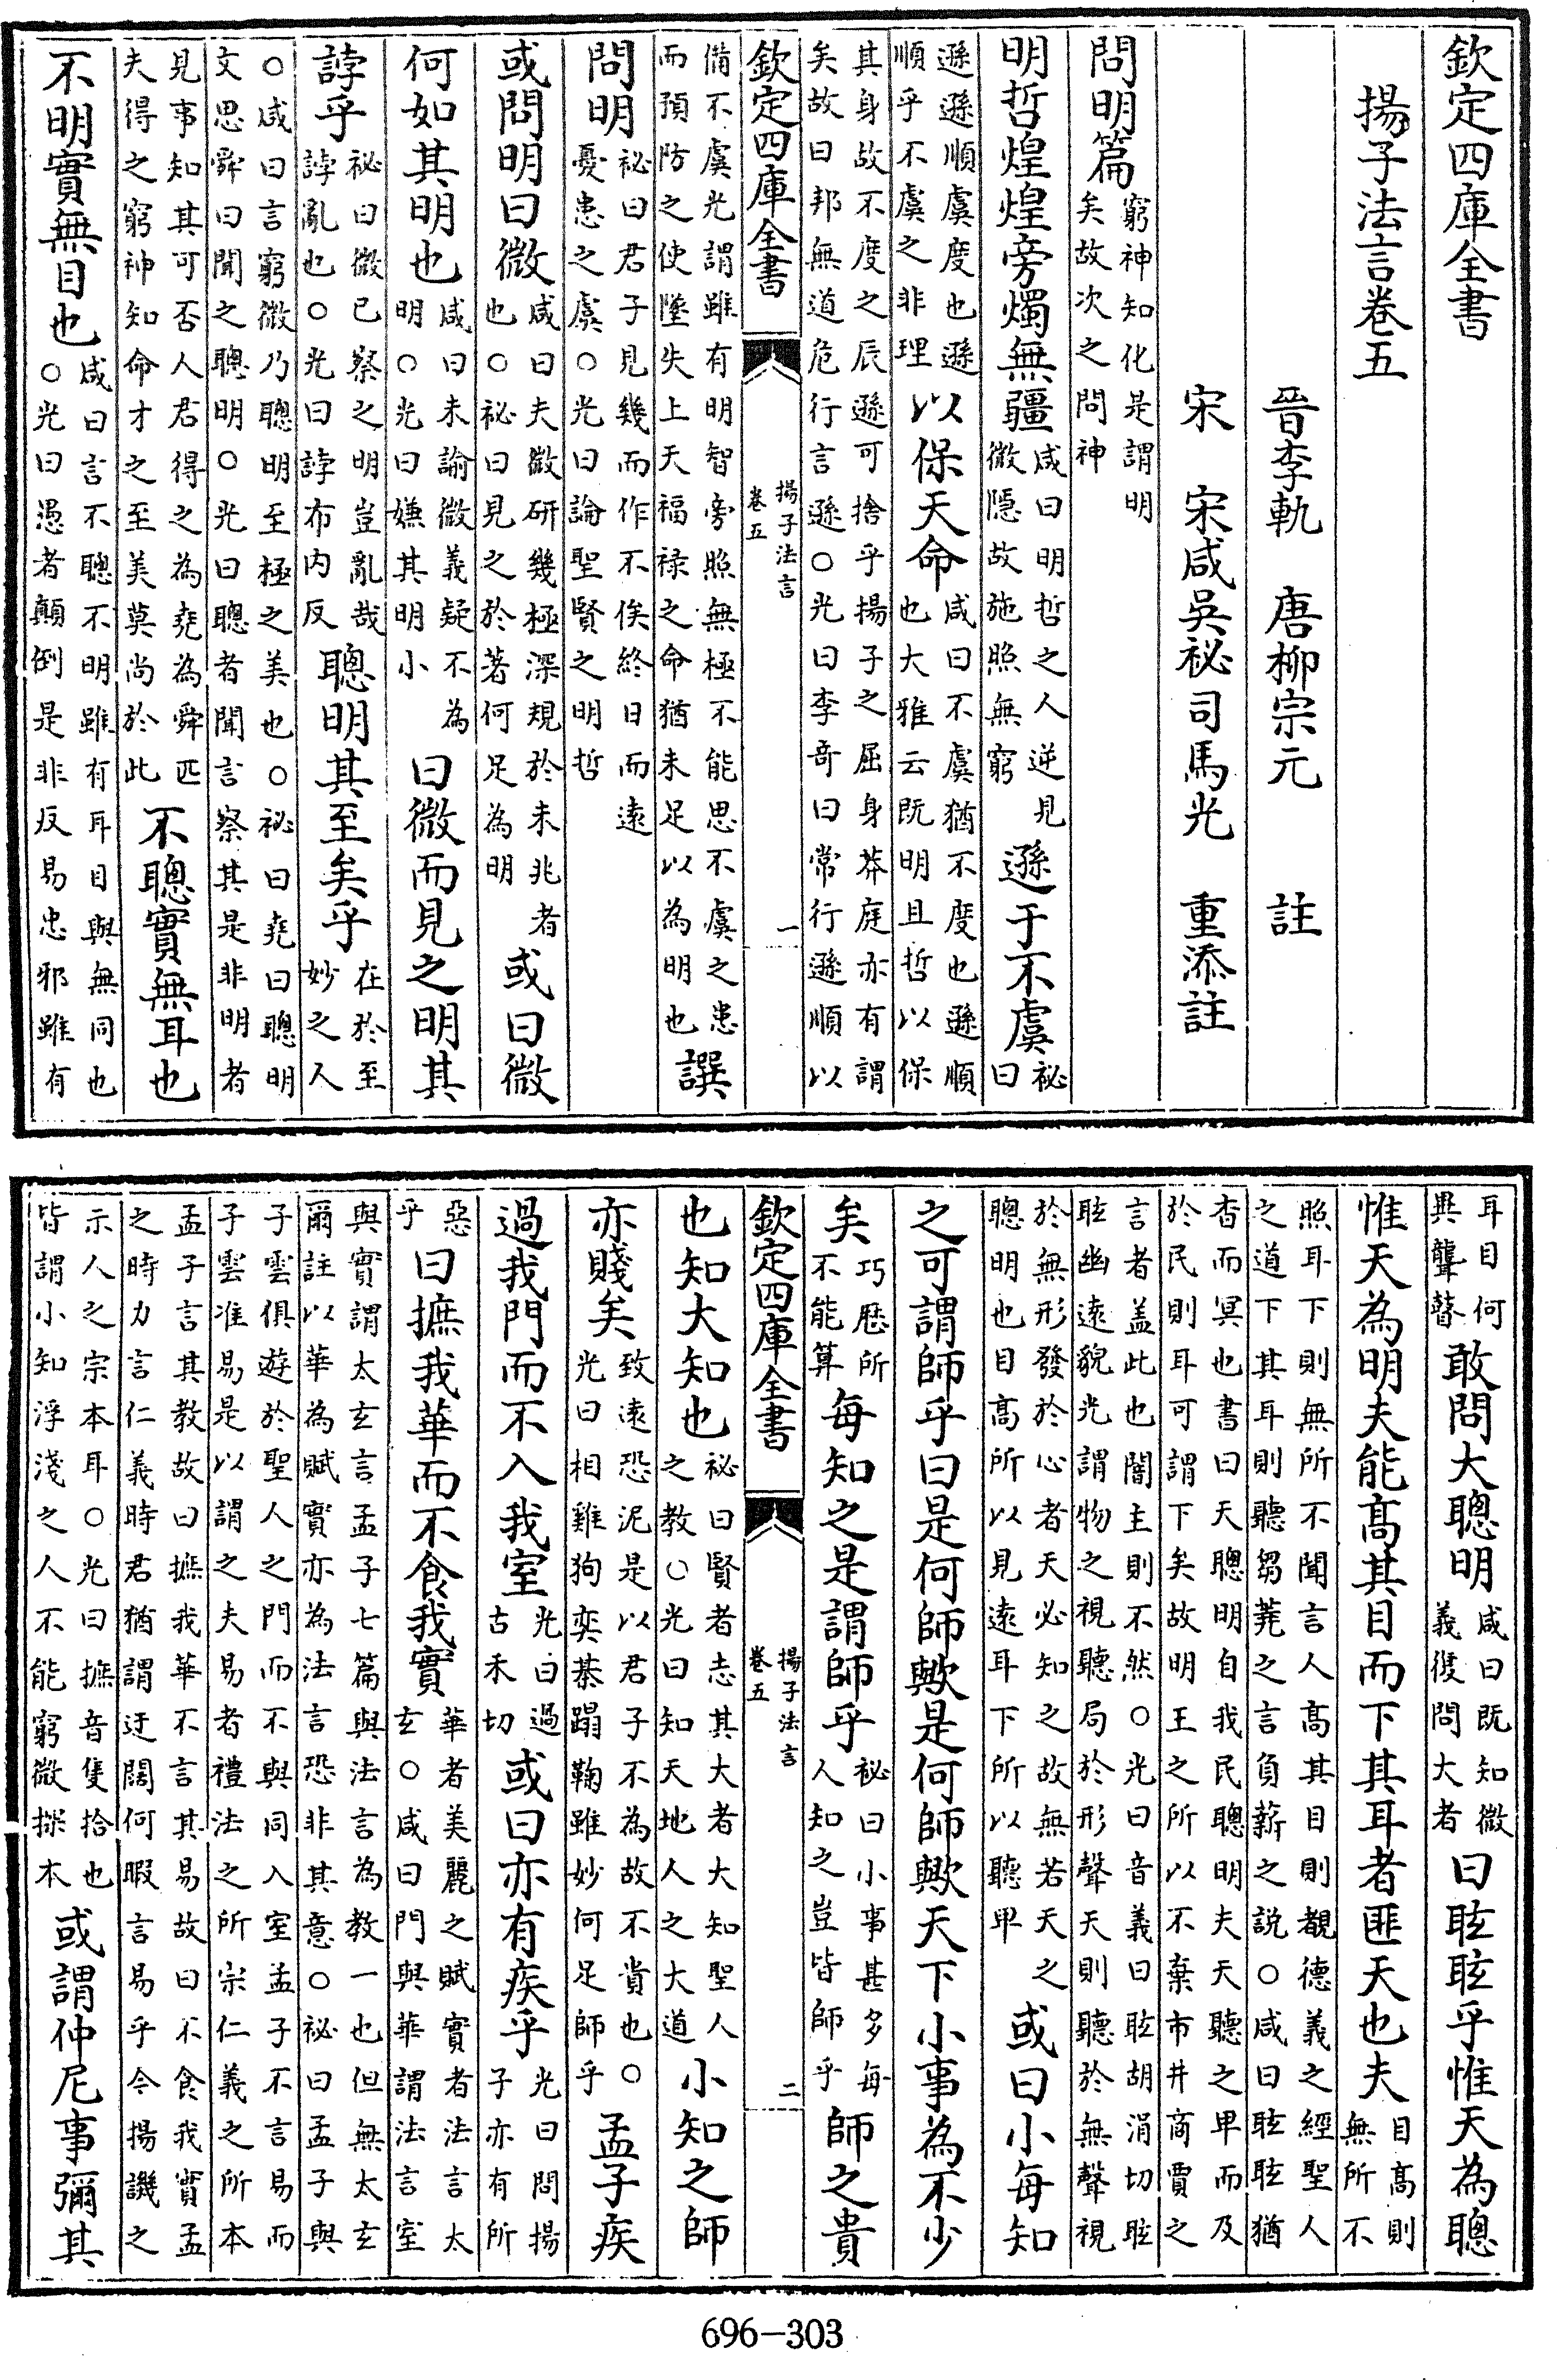 欽定四庫全書
揚子法言卷五
晉李軌 唐柳宗元 註
宋 宋咸吳祕司馬光 重添註
問明篇窮神知化是謂明矣故次之問神
明哲煌煌旁燭無疆咸曰明哲之人逆見微隱故施照無窮遜于不虞祕曰
遜遜順虞度也遜順乎不虞之非理以保天命咸曰不虞猶不度也遜順也大雅云既明且哲以保
其身故不度之辰遜可捨乎揚子之屈身莽庭亦有謂矣故曰邦無道危行言遜○光曰李奇曰常行遜順以
欽定四庫全書 揚子法言 卷五 一
備不虞光謂雖有明智旁照無極不能思不虞之患而預防之使墜失上天福祿之命猶未足以為明也譔
問明祕曰君子見幾而作不俟終日而遠憂患之虞○光曰論聖賢之明哲
或問明曰微咸曰夫微研幾極深規於未兆者也○祕曰見之於著何足為明或曰微
何如其明也咸曰未諭微義疑不為明○光曰嫌其明小曰微而見之明其
誖乎祕曰微已察之明豈亂哉誖亂也○光曰誖布内反聰明其至矣乎在於至妙之人
○咸曰言窮微乃聰明至極之美也○祕曰堯曰聰明文思舜曰聞之聰明○光曰聰者聞言察其是非明者
見事知其可否人君得之為堯為舜匹夫得之窮神知命才之至美莫尚於此不聰實無耳也
不明實無目也咸曰言不聰不明雖有耳目與無同也○光曰愚者顛倒是非反易忠邪雖有
耳目何異聾瞽敢問大聰明咸曰既知微義復問大者曰眩眩乎惟天為聰
惟天為明夫能髙其目而下其耳者匪天也夫目髙則無所不
照耳下則無所不聞言人髙其目則覩德義之經聖人之道下其耳則聽芻蕘之言負薪之説○咸曰眩眩猶
杳而冥也書曰天聰明自我民聰明夫天聽之卑而及於民則耳可謂下矣故明王之所以不棄市井商賈之
言者盖此也闇主則不然○光曰音義曰眩胡涓切眩眩幽遠貌光謂物之視聽局於形聲天則聽於無聲視
於無形發於心者天必知之故無若天之聰明也目髙所以見遠耳下所以聽卑或曰小每知
之可謂師乎曰是何師歟是何師歟天下小事為不少
矣巧厯所不能算每知之是謂師乎祕曰小事甚多每人知之豈皆師乎師之貴
欽定四庫全書 揚子法言 卷五 二
也知大知也祕曰賢者志其大者大知聖人之教○光曰知天地人之大道小知之師
亦賤矣致遠恐泥是以君子不為故不貴也○光曰相雞狗奕棊蹋鞠雖妙何足師乎孟子疾
過我門而不入我室光曰過古禾切或曰亦有疾乎光曰問揚子亦有所
惡乎曰摭我華而不食我實華者美麗之賦實者法言太玄○咸曰門與華謂法言室
與實謂太玄言孟子七篇與法言為教一也但無太玄爾註以華為賦實亦為法言恐非其意○祕曰孟子與
子雲俱遊於聖人之門而不與同入室孟子不言易而子雲准易是以謂之夫易者禮法之所宗仁義之所本
孟子言其教故曰摭我華不言其易故曰不食我實孟之時力言仁義時君猶謂迂闊何暇言易乎今揚譏之
示人之宗本耳○光曰摭音隻拾也皆謂小知浮淺之人不能窮微探本或謂仲尼事彌其
696-303